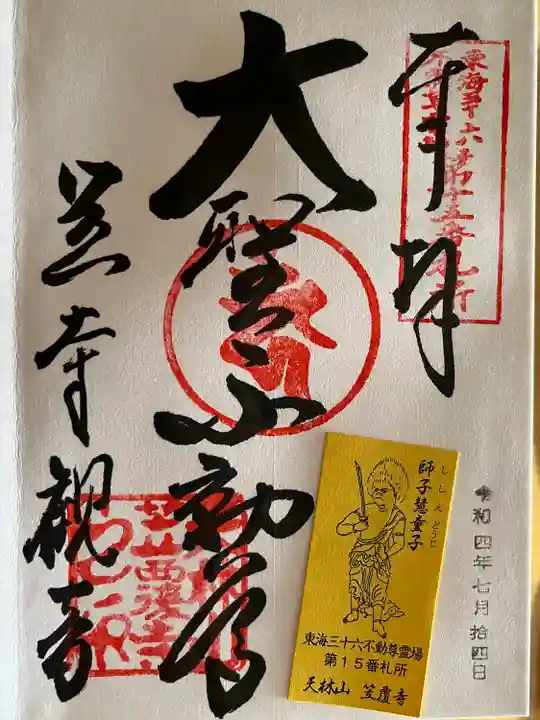 奉拝
東海三十六不動尊第十五番札所
大聖不動尊
笠寺観音
令和四年七月拾四日
師子慧童子
ししえどうじ
東海三十六不動尊霊場
第15番札所
天林山 笠覆寺